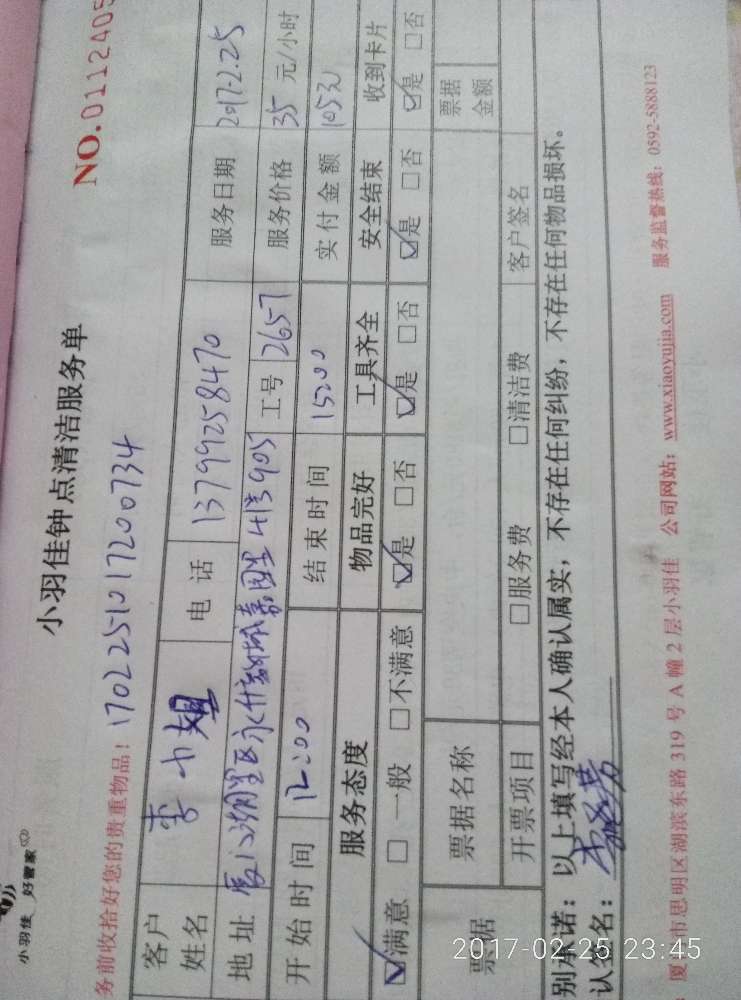 小羽佳 好管家
小羽佳钟点清洁服务单
NO.0112405
务前收拾好您的贵重物品! 1702251017200734
客户姓名 李小姐 电话 13799258470 服务日期 2017.2.25
地址 905 工号 2657 服务价格 35 元/小时
开始时间 12:00 结束时间 15:00 实付金额 105元
服务态度 物品完好 工具齐全 安全结束 收到卡片
☑满意 □一般 □不满意 ☑是 □否 ☑是 □否 ☑是 □否 ☑是 □否
票据 票据名称 票据金额
开票项目 □服务费 □清洁费 客户签名
别承诺:以上填写经本人确认属实,不存在任何纠纷,不存在任何物品损坏。
认签名:
厦 市思明区湖滨东路 319 号 A 幢 2 层小羽佳 公司网站:www.xiaoyujia.com 服务监督热线:0592-5888123
2017-02-25 23:45